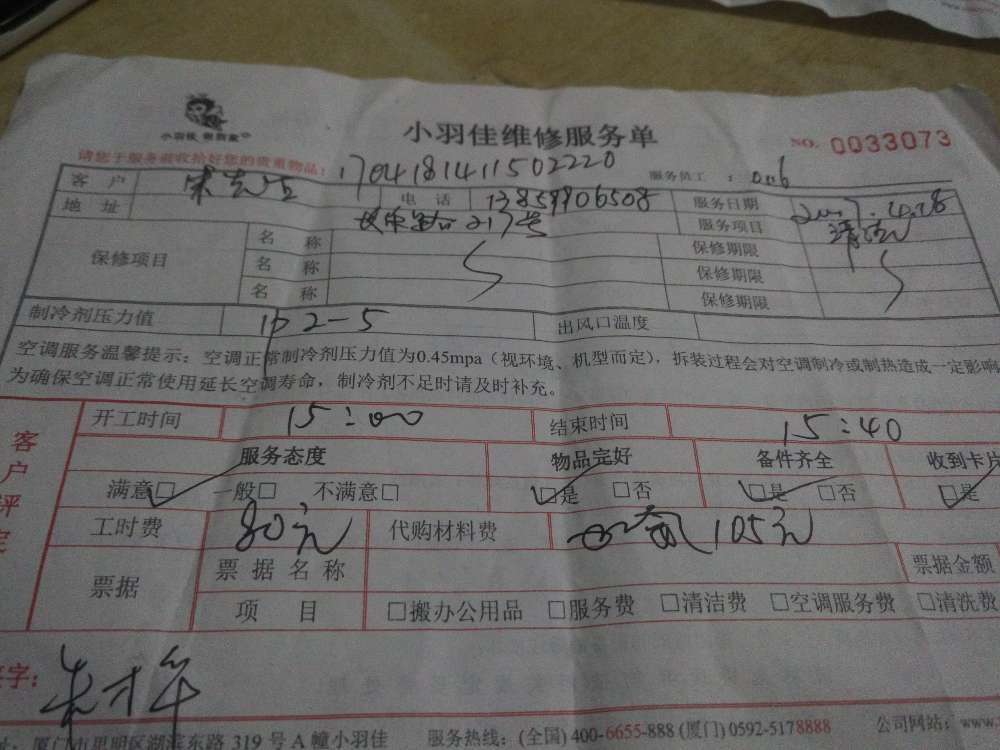 小羽佳 彻彻家
小羽佳维修服务单
NO. 0033073
请您于服务前收拾好您的贵重物品： 1704181411502220 服务员工：006
客户 电话 13859906508 服务日期
地址 217号 服务项目 清洗
保修项目 名称 保修期限
名称 保修期限
名称 保修期限
制冷剂压力值 2-5 出风口温度
空调服务温馨提示：空调正常制冷剂压力值为0.45mpa（视环境、机型而定），拆装过程会对空调制冷或制热造成一定影响
为确保空调正常使用延长空调寿命，制冷剂不足时请及时补充。
客户评定
开工时间 15：00 结束时间 15：40
服务态度 物品完好 备件齐全 收到卡片
满意□ 一般□ 不满意□ □是 □否 □是 □否 □是
工时费 80元 代购材料费 105元
票据 票据名称 票据金额
项目 □搬办公用品 □服务费 □清洁费 □空调服务费 □清洗费
签字：
址：厦门市思明区湖滨东路 319 号 A 幢小羽佳 服务热线：(全国) 400-6655-888 (厦门) 0592-5178888 公司网站：www.